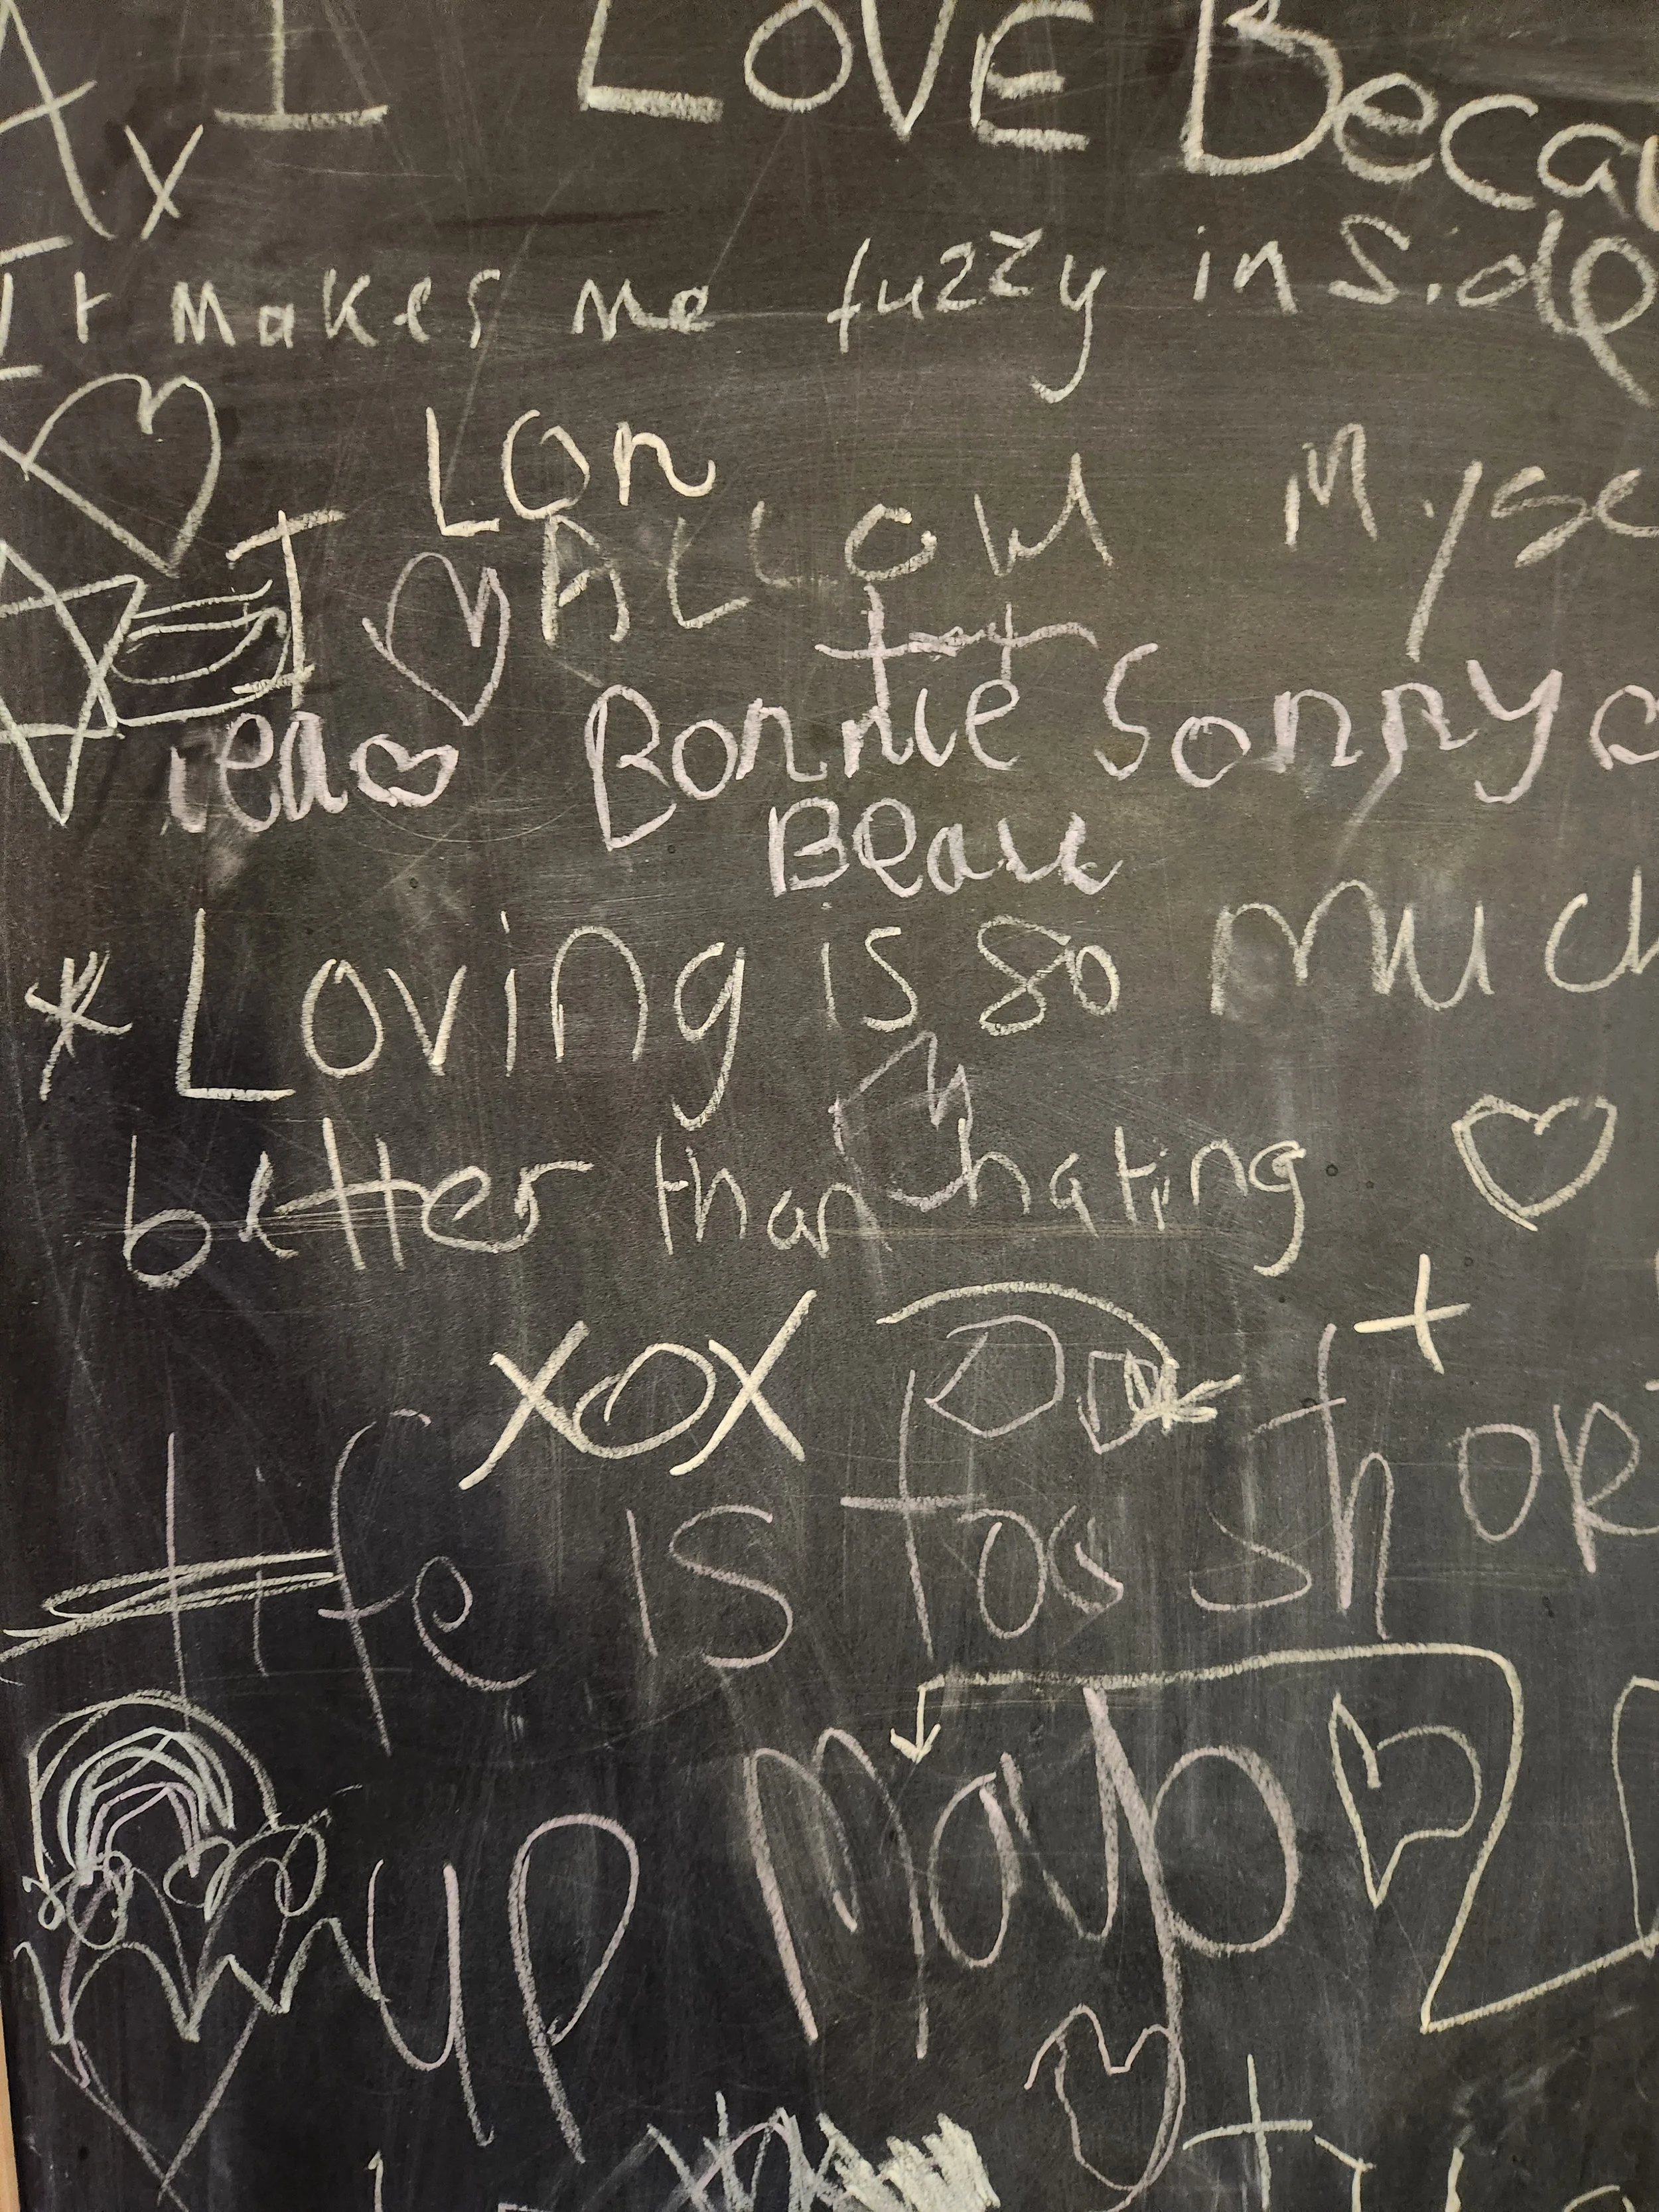 I LOVE Becau
It makes me fuzzy inside
Lon
I ALLOW Myse
Bonnie Sonny
Bear
* Loving is so much
better than hating
XOX
Life is too shor
up Mayo